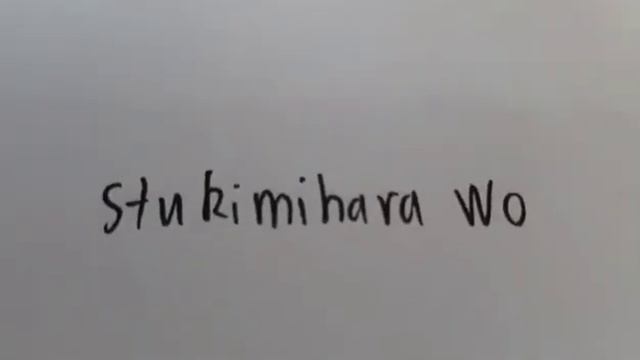 stukimihara wo